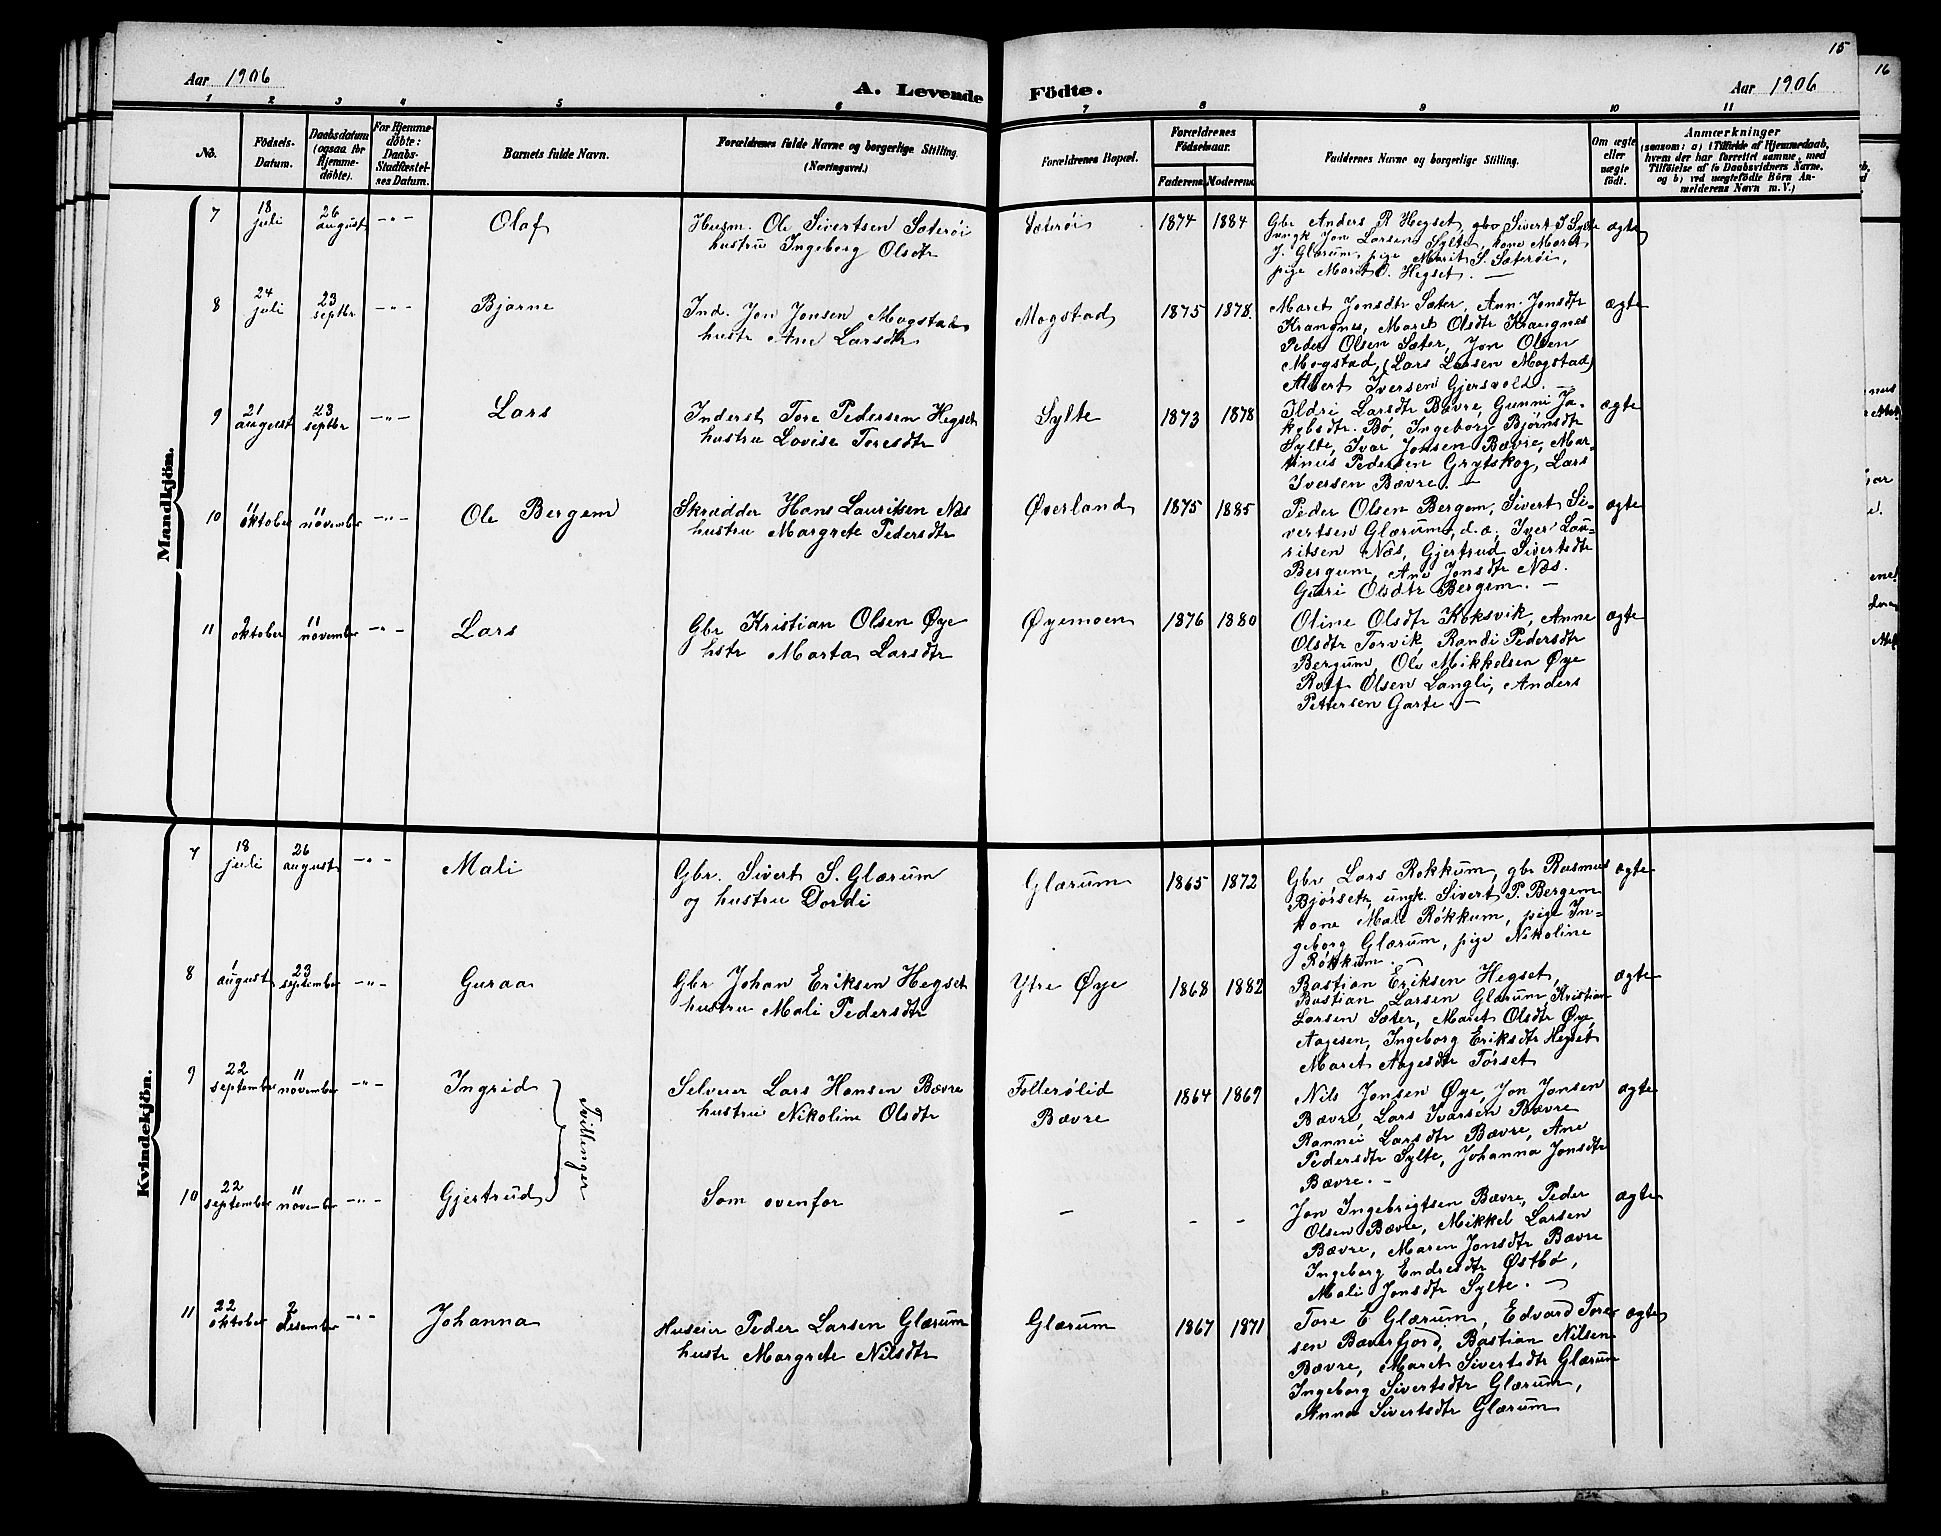 15
16
Aar 1906
A. Levende Födte.
Aar 1906
1 2 3 4 5 6 7 8 9 10 11
No.
Födsels-Datum.
Daabsdatum (ogsaa for Hjemme-döbte).
For Hjemme-döbte: Daabs-Stadfæstel-ses Datum.
Barnets fulde Navn.
Forældrenes fulde Navne og borgerlige Stilling. (Næringsvei.)
Forældrenes Bopæl.
Forældrenes Födselsaar.
Faderens. Moderens.
Faddernes Navne og borgerlige Stilling.
Om ægte eller uægte födt.
Anmærkninger
(saasom: a) i Tilfælde af Hjemmedaab, hvem der har forrettet samme, med Tilföielse af to Daabsvidners Navne, og b) ved uægtefödte Börn An-melderens Navn m. V.)
Mandkjön.
7 18 juli 26 august -"- Olaf Husm. Ole Sivertsen Sæterøi Sæterøi 1874 1884 Gbr Anders R Hegset, gbr Sivert J Sylte ægte
hustru Ingeborg Olsdtr ungk Jon Larsen Sylte, kone Marit
J. Glærum, pige Marit S. Sæterøi,
pige Marit O. Hegset. —
8 24 juli 23 septbr -"- Bjarne Ind. Jon Jonsen Mogstad Mogstad 1875 1878. Maret Jonsdtr Sæter, Ann Jonsdtr ægte
hustr Ane Larsdtr Krangnes, Maret Olsdtr Krangnes
Peder Olsen Sæter, Jon Olsen
Mogstad, (Lars Larsen Mogstad)
Albert Iversen Gjersvold. —
9 21 august 23 septbr -"- Lars Inderst Tore Pedersen Hegset Sylte 1873 1878 Ildri Larsdtr Bævre, Gunni Ja- ægte
hustru Lovise Toresdtr kobsdtr. Bø, Ingeborg Bjørnsdtr
Sylte, Ivar Jonsen Bævre, Mar-
tinus Pedersen Grytskog, Lars
Iversen Bævre. —
10 1 oktober 11 november -"- Ole Bergem Skrædder Hans Lauritsen Næs Øverland 1875 1885 Peder Olsen Bergem, Sivert Si- ægte
hustru Margrete Pedersdtr vertsen Glærum, d.æ., Iver Lau-
ritsen Næs, Gjertrud Sivertsdtr
Bergum, Ane Jonsdtr Næs.
Guri Olsdtr Bergem. —
11 2 oktober 11 november -"- Lars Gbr Kristian Olsen Øye Øyemoen 1876 1880 Oline Olsdtr Koksvik, Anne ægte
hstr Marta Larsdtr Olsdtr Torvik, Randi Pedersdtr
Bergum, Ole Mikkelsen Øye
Rolf Olsen Langli, Anders
Pettersen Garte. —
Kvindekjön.
7 18 juli 26 august -"- Mali Gbr. Sivert S. Glærum Glærum 1865 1872 Gbr Lars Rokkum, gbr Rasmus ægte
og hustru Dordi Bjørseth, ungk. Sivert P. Bergem
kone Mali Røkkum, pige In-
geborg Glærum, pige Nikoline
Røkkum. —
8 1 august 23 september -"- Guraa Gbr Johan Eriksen Hegset Ytre Øye 1868 1882 Bastian Eriksen Hegset, ægte
hustru Mali Pedersdtr Bastian Larsen Glærum, Kristian
Larsen Sæter, Maret Olsdtr Øye,
Aagesen, Ingeborg Eriksdtr Hegset
Maret Aagesdtr Tørset
9 22 september 11 november -"- Ingrid Selveier Lars Hansen Bævre Follerølid 1864 1869 Nils Jonsen Øye, Jon Jonsen ægte
hustru Nikoline Olsdtr Bævre Bævre, Lars Ivarsen Bævre
Rannei Larsdtr Bævre, Ane
Pedersdtr Sylte, Johanna Jonsdtr
Bævre. —
Tvillinger
10 22 september 11 november -"- Gjertrud Som ovenfor - - - Jon Ingebrigtsen Bævre, Peder ægte
Olsen Bævre, Mikkel Larsen
Bævre, Maren Jonsdtr Bævre
Ingeborg Endresdtr Østbø,
Mali Jonsdtr Sylte. —
11 22 oktober 2 desember -"- Johanna Huseier Peder Larsen Glærum Glærum 1867 1871 Tore E Glærum, Edvard Tore- ægte
hustr Margrete Nilsdtr sen Bæverfjord, Bastian Nilsen
Bævre, Maret Sivertsdtr Glærum
Ingeborg Sivertsdtr Glærum,
Anna Sivertsdtr Glærum